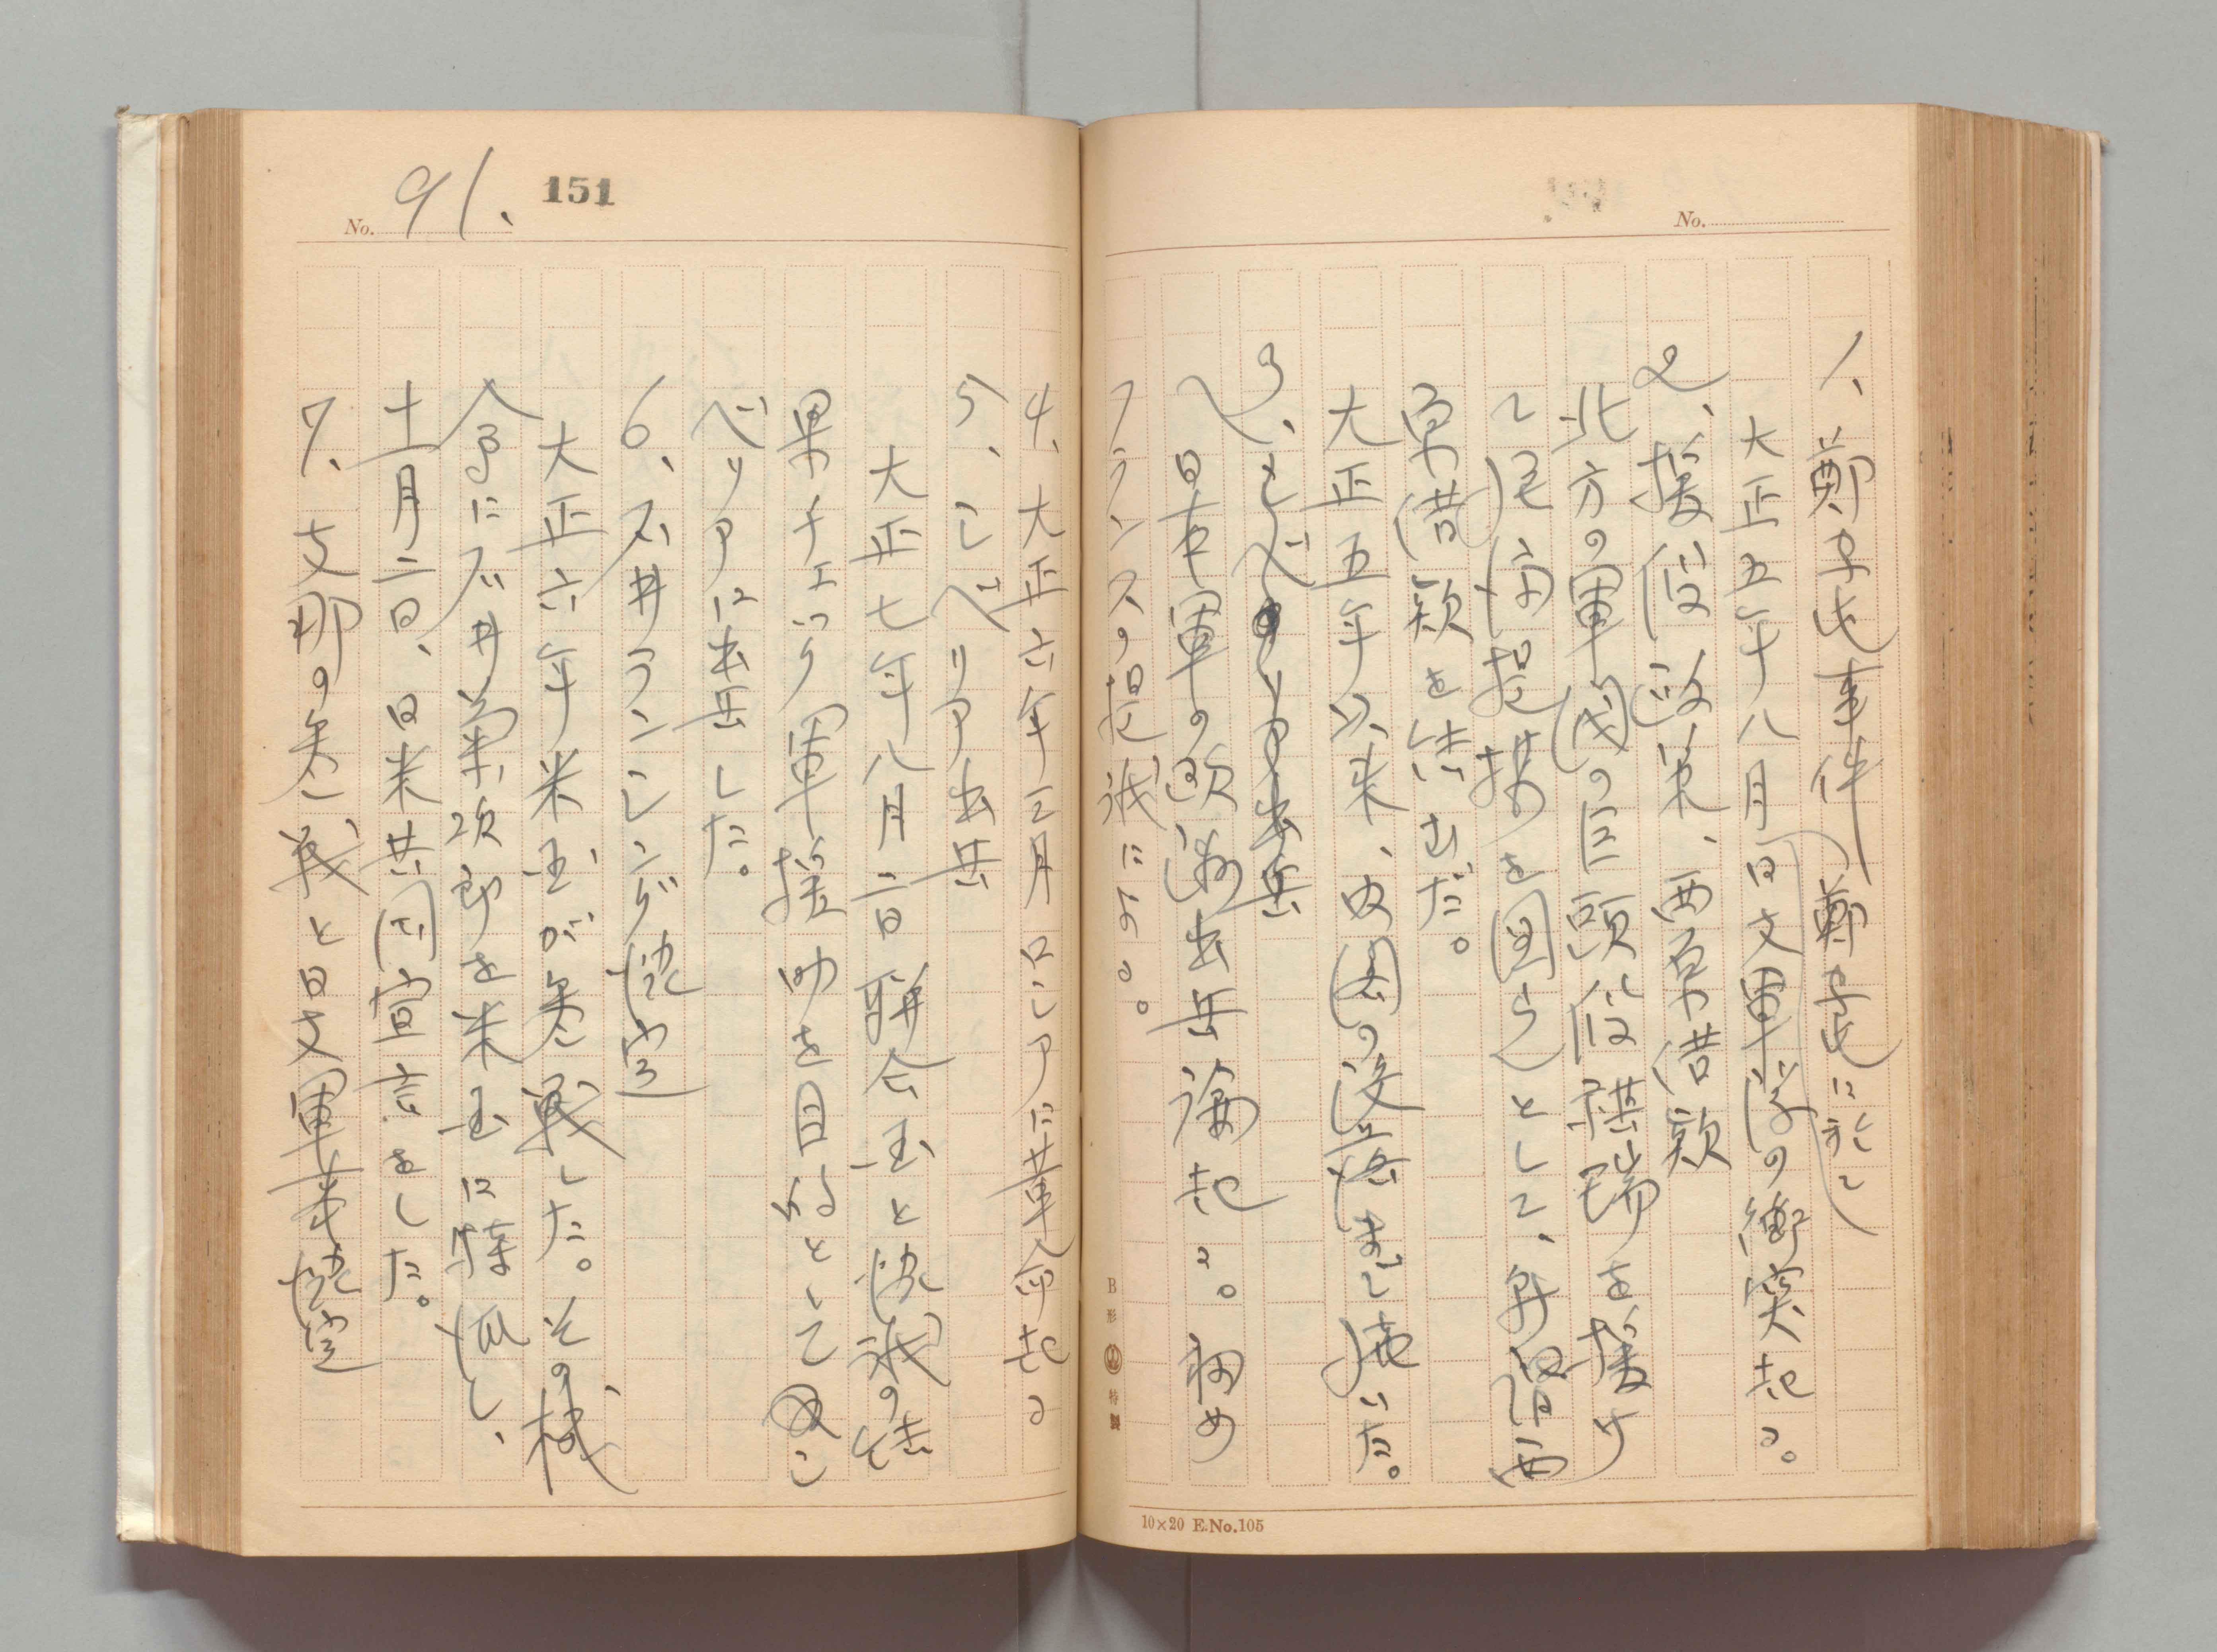 No.
1、鄭家屯事件(鄭家屯に於て
大正五年八月 日支軍隊の衝突起る。
2、援段政策、西原借款
北方の軍閥の巨頭段祺瑞を援け
て居る 提携を図らんとして、年 西
原借款を結んだ。
大正五年以来、内閣の没落まで続いた。
3、シベリア出兵
日本軍の欧洲出兵論起る。初め
フランスの提議による。
B形 特製
10×20 E.No.105
151
No. 91.
4、大正六年三月ロシアに革命起る
5、シベリア出兵
大正七年八月二日聯合国と協議の結
果チェック軍援助を目的として シ
ベリアに出兵した。
6、石井ランシング協定
大正六年米国が参戦した。その機
会に石井菊次郎を米国に特派し、
十一月二日、日米共同宣言をした。
7、支那の参戦と日支軍事協定